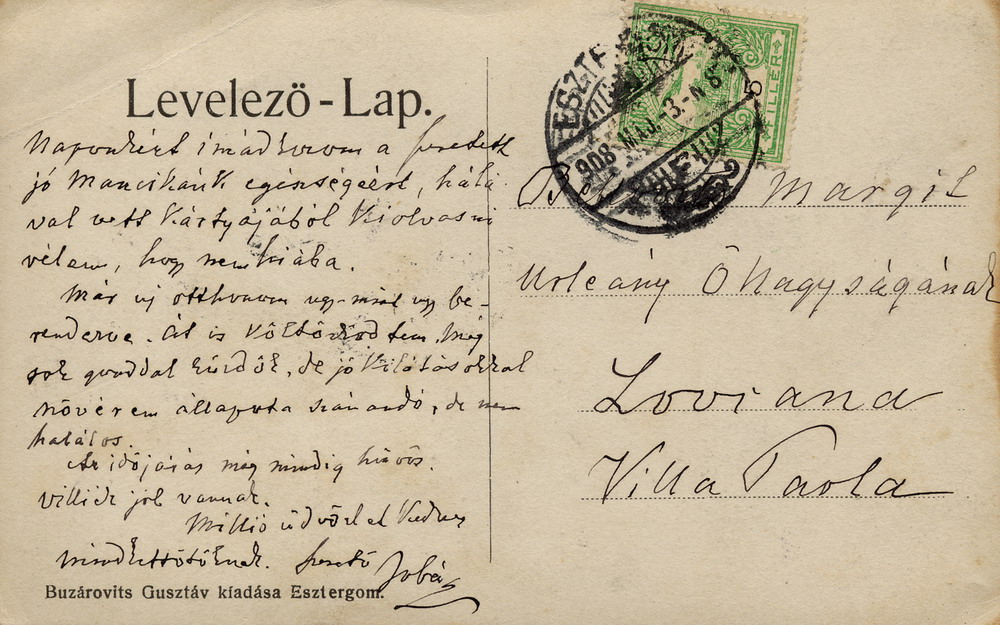 Levelező-Lap.
Naponként imádkozom a szeretett
jó Mancikánk egészségéért, hálá-
val vett kártyájából kiolvasni
vélem, hogy nem hiába.
Már új otthonom úgy-mint úgy be-
rendezve. Át is költözködtem. Még
sok gonddal küzdök, de jó kilátásokkal
növérem állapota szánandó, de nem
halálos.
Az időjárás még mindig hűvös.
Villiék jól vannak.
Millió üdvözlet kedves
mindkettőtöknek. szerető
Buzárovits Gusztáv kiadása Esztergom.
FILLÉR
5
ESZTE
908 MÁJ. -3.
Margit
Urleány Őnagyságának
Lovrana
Villa Paola